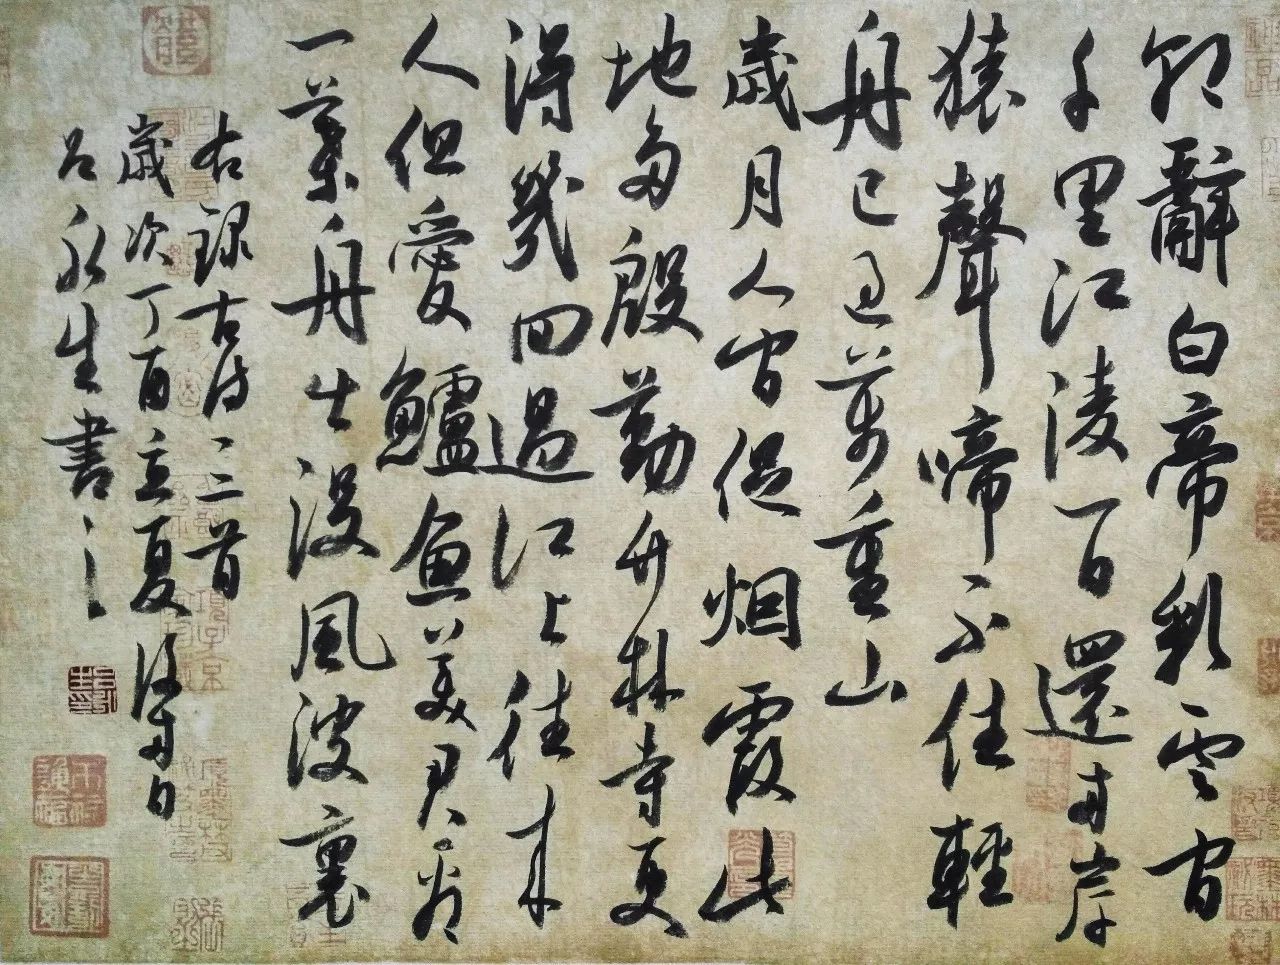 朝辭白帝彩雲間
千里江陵一日還兩岸
猿聲啼不住輕
舟已過萬重山
歲月人間促烟霞此
地多殷勤竹林寺更
得幾回過江上往來
人但愛鱸魚美君看
一葉舟出沒風波裏
右錄古詩三首
歲次丁酉立夏後兩日
呂永生書之